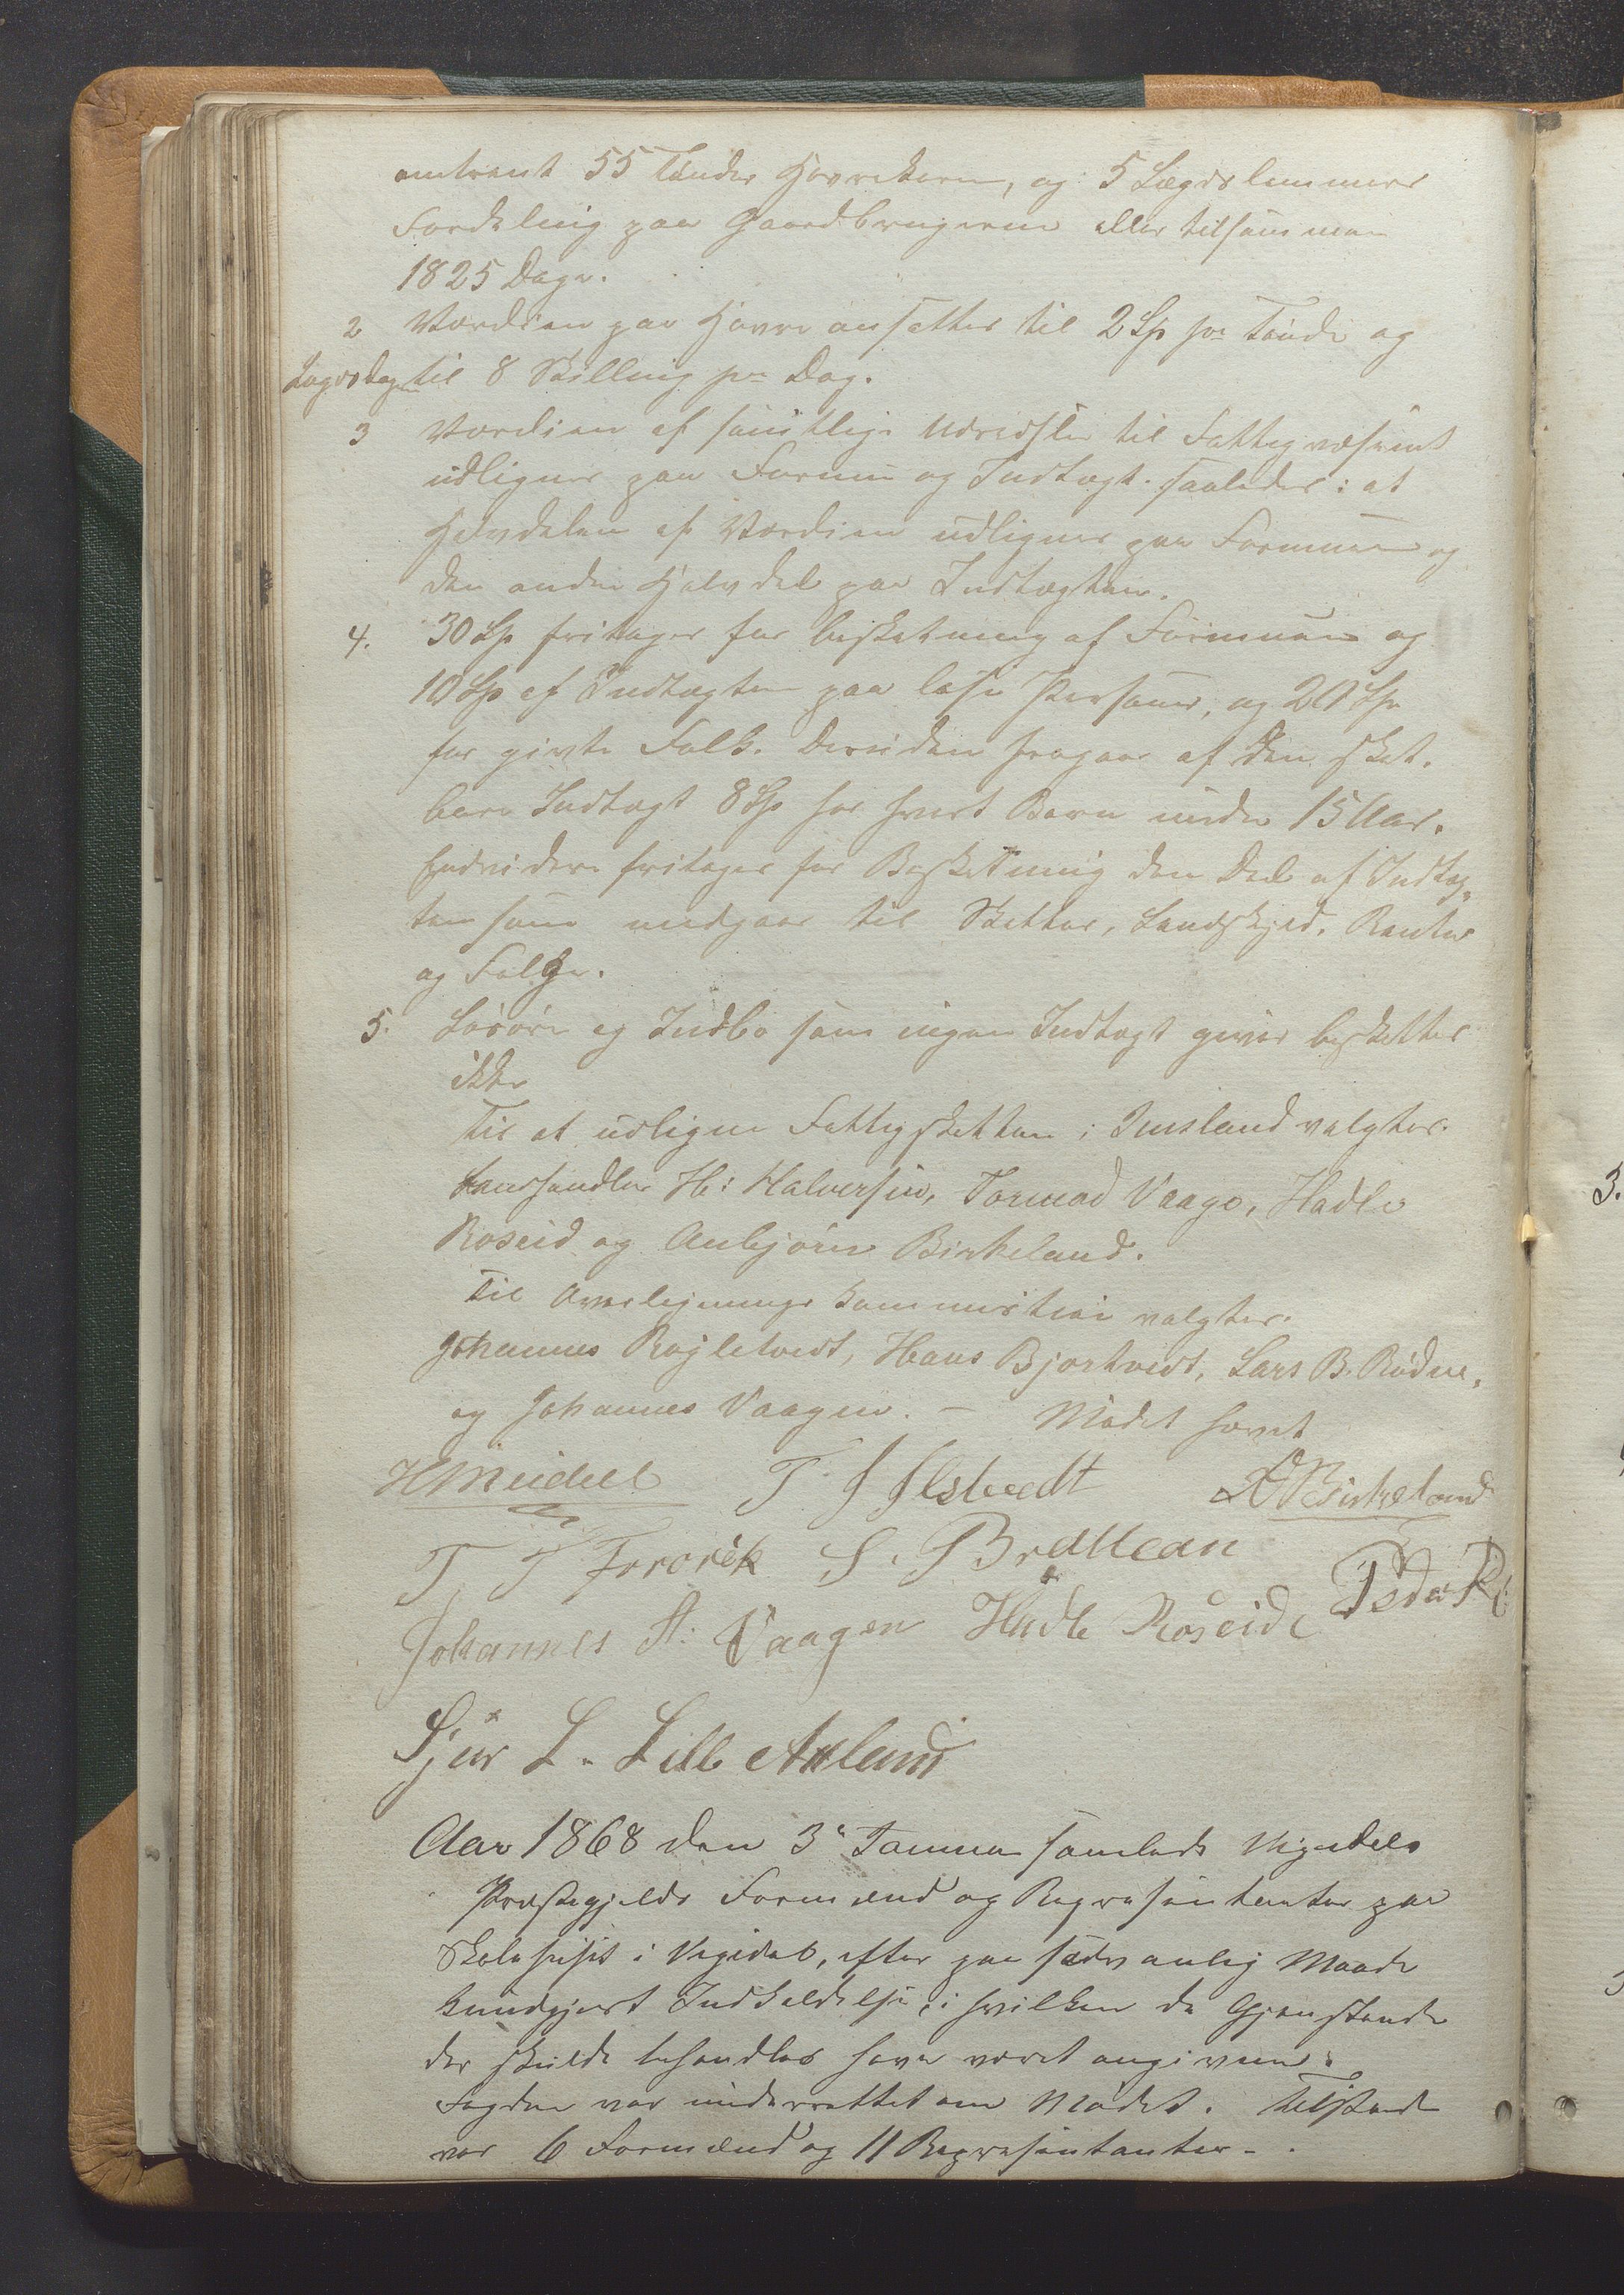 omtrent 55 Tønder Havrekorn, og 5 Lægdslemmers
Fordeling paa Gaardbrugerne eller tilsammen
1825 Dage.
2 Værdien paa Havre ansættes til 2 Sp pr Tønde og
Lægdsdagen til 8 Skilling pr Dag.
3 Værdien af samtlige Udredsler til Fattigvæsenet
udlignes paa Formue og Indtægt saaledes: at
Halvdelen af Værdien udlignes paa Formuen og
den anden Halvdel paa Indtægten.
4. 30 Sp fritages for beskatning af Formuen og
10 Sp af Indtægten paa løse Personer, og 20 Sp
for givte Folk. Desuden fragaar af den skat-
bare Indtægt 8 Sp for hvert Barn under 15 Aar.
Endvidere fritages for Beskatning den Del af Indtæg-
ten som medgaar til Skatter, Landskyld, Renter
og Folge.
5. Løsøre og Indbo som ingen Indtægt giver beskattes
ikke
Til at udligne Fattigskatten i Imsland valgtes.
Landhandler H: Halversen, Tormod Vaage, Hadle
Roseid og Anbjørn Birkeland.
Til Overligningskommission valgtes.
Johannes Røgletvedt, Hans Bjortvedt, Lars B. Rødne,
og Johannes Vaagen. — Mødet hævet
HMeidell T. J Ilstvedt A Birkeland
T. T Fororik S. Brattean
Johannes A: Vaagen Hadle Roseide Peder R:
Sjur L. Lille Axland
Aar 1868 den 3' Januar samledes Vigedals
Præstegjelds Formænd og Repræsentanter paa
Skolehuset i Vigedal, efter paa sædvanlig Maade
kundgjort Indkaldelse, i hvilken de Gjenstande
der skulde behandles have været angivne.
Fogden var underrettet om Mødet. Tilstede
var 6 Formænd og 11 Repræsentanter. -